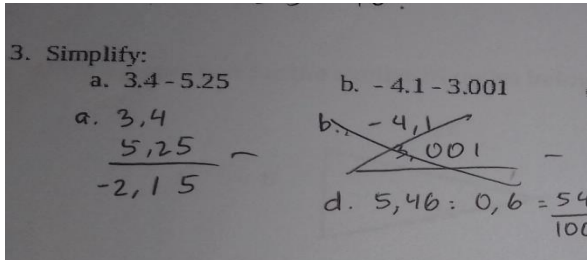 3. Simplify:
a. 3.4 - 5.25
b. - 4.1 - 3.001
a. 3,4
5,25 -
-2,15
b. - 4,1
3,001 -
d. 5,46 : 0,6 =